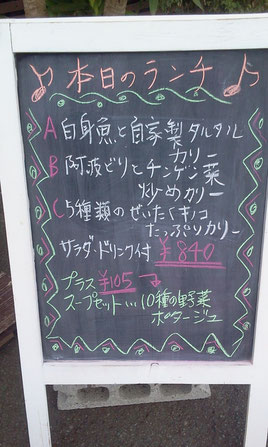 ♪本日のランチ♪
A 白身魚と自家製タルタル
カリー
B 阿波どりとチンゲン菜
炒めカリー
C 5種類のぜいたくキノコ
たっぷりカリー
サラダ・ドリンク付 ¥840
プラス ¥105
スープセット…10種の野菜
ポタージュ